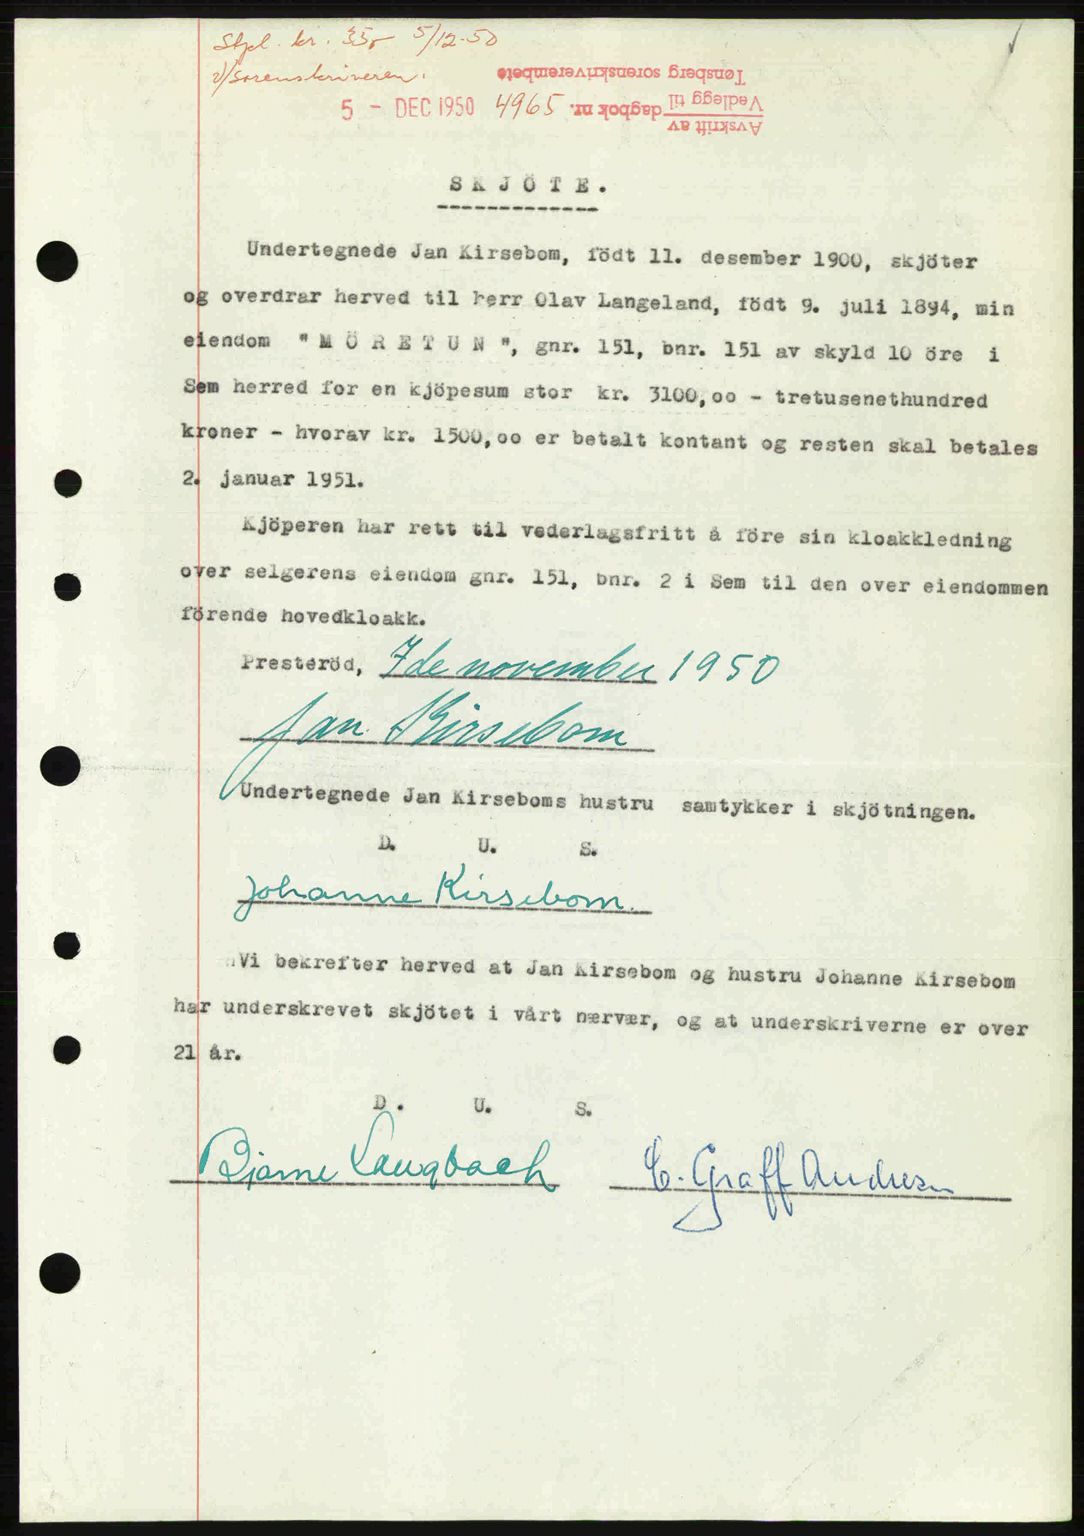 Stpl. kr. 35,- 5/12-50
v/sorenskriveren.
Tønsberg sorenskriverembete
Vedlegg til
Avskrift av
dagbok nr. 4965
5 - DEC 1950
SKJÖTE.
Undertegnede Jan Kirsebom, födt 11. desember 1900, skjöter
og overdrar herved til herr Olav Langeland, födt 9. juli 1894, min
eiendom "MÖRETUN", gnr. 151, bnr. 151 av skyld 10 öre i
Sem herred for en kjöpesum stor kr. 3100,oo - tretusenethundred
kroner - hvorav kr. 1500,oo er betalt kontant og resten skal betales
2. januar 1951.
Kjöperen har rett til vederlagsfritt å före sin kloakkledning
over selgerens eiendom gnr. 151, bnr. 2 i Sem til den over eiendommen
förende hovedkloakk.
Presteröd, 7de november 1950
Jan Kirsebom
Undertegnede Jan Kirseboms hustru samtykker i skjötningen.
D. U. S.
Johanne Kirsebom.
Vi bekrefter herved at Jan Kirsebom og hustru Johanne Kirsebom
har underskrevet skjötet i vårt nærvær, og at underskriverne er over
21 år.
D. U. S.
Bjarne Laugbach C. Graff Andresen